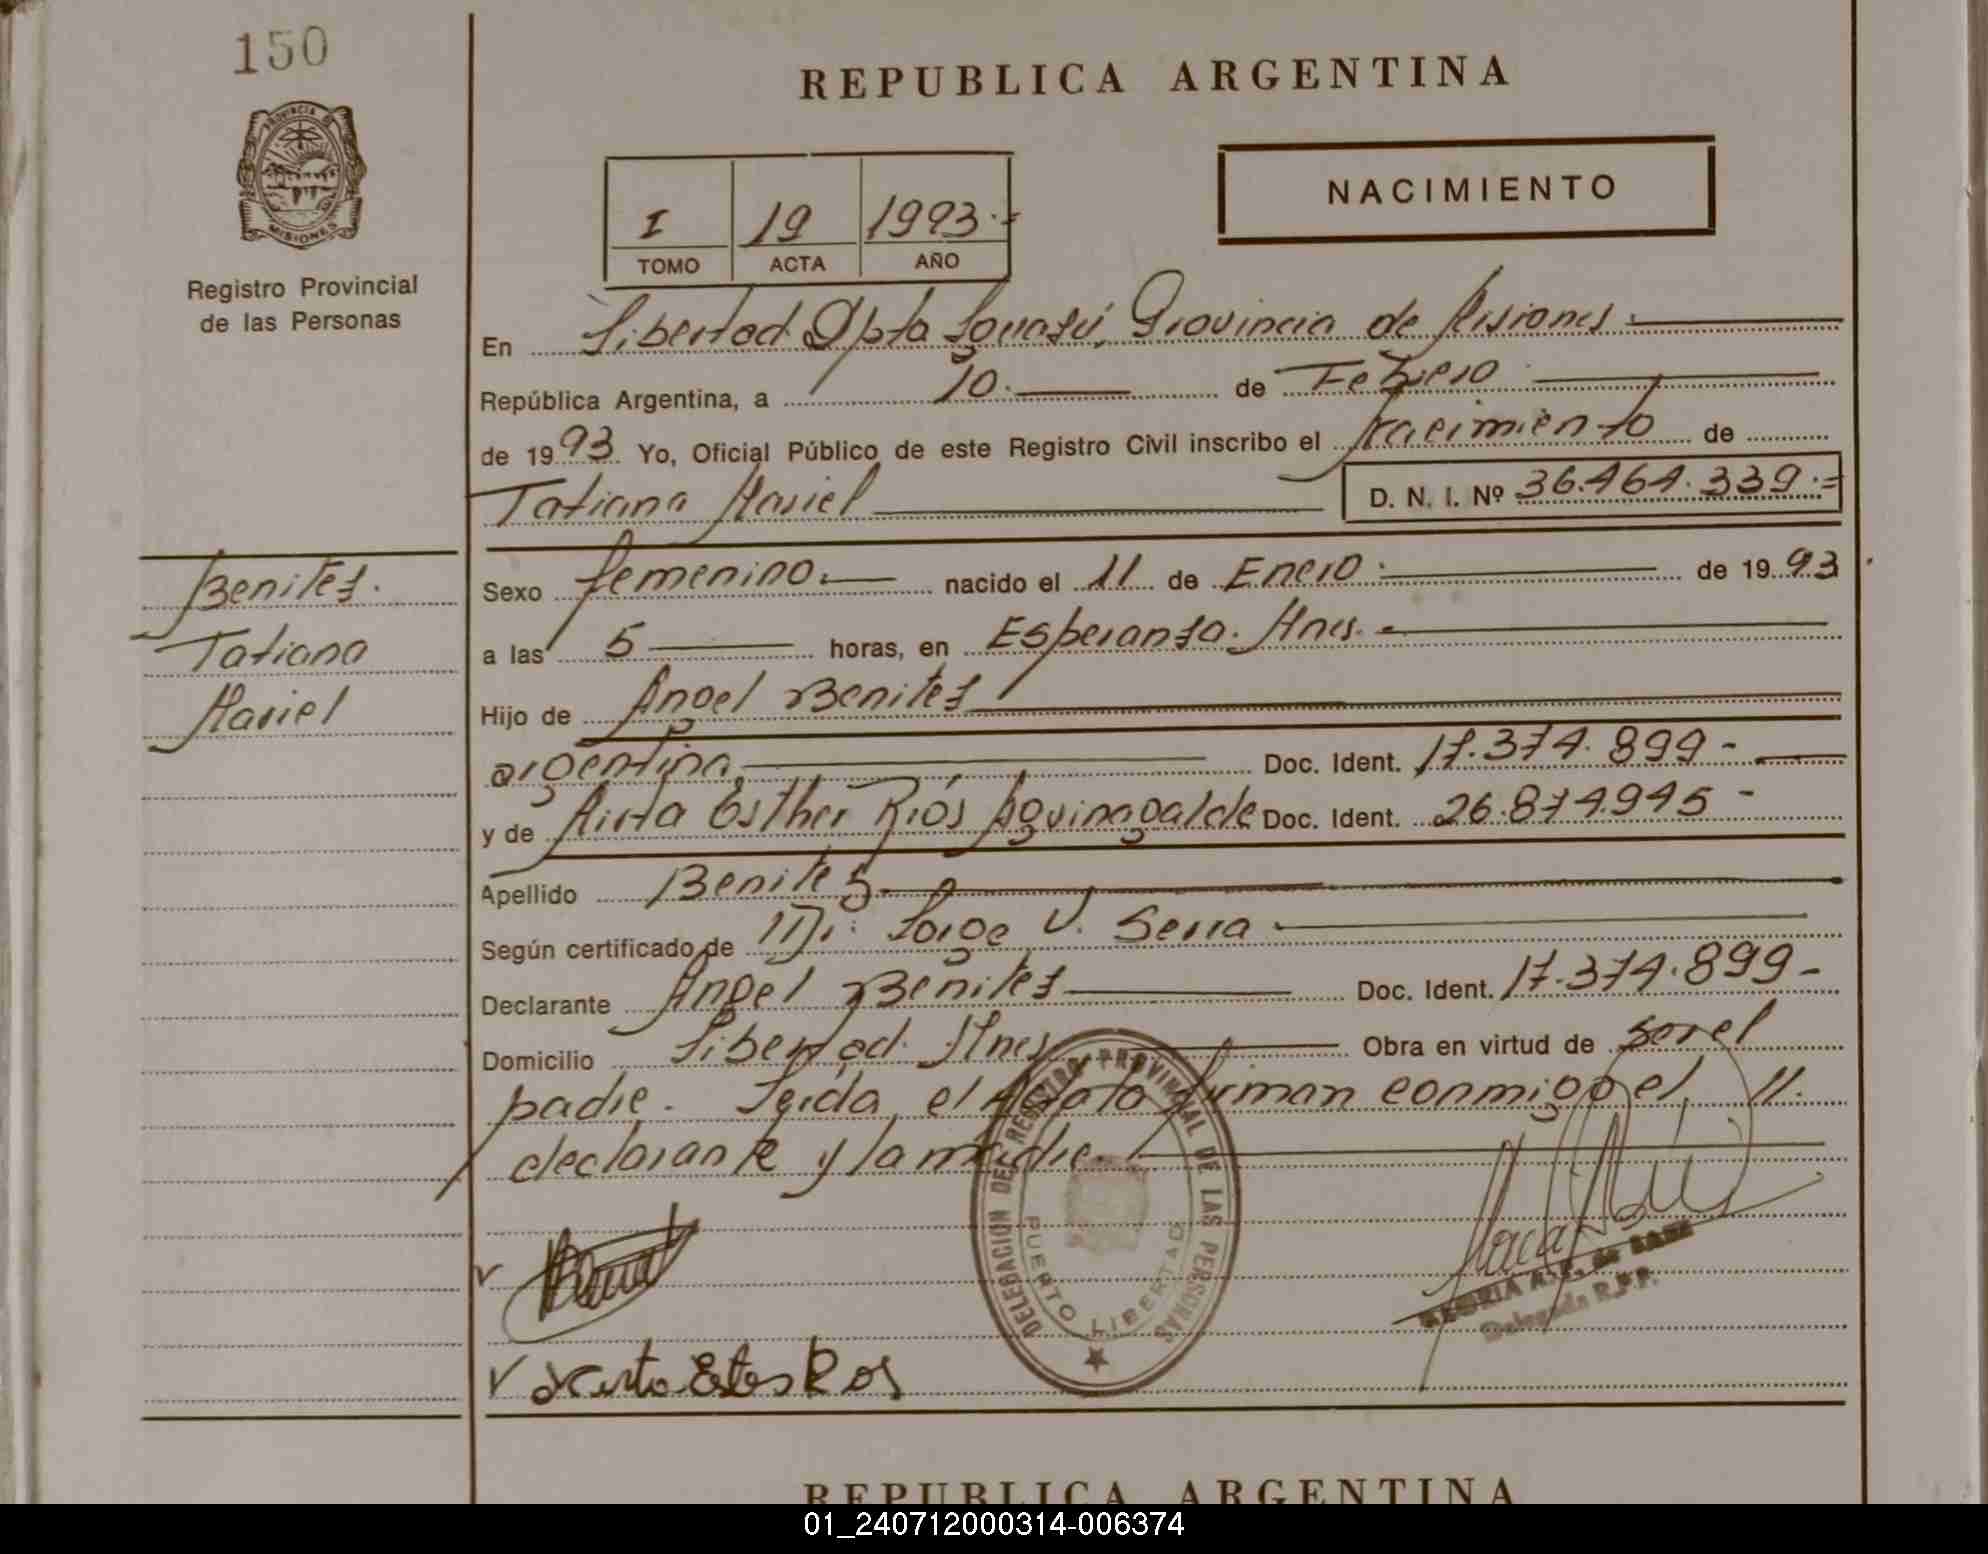 150
REPUBLICA ARGENTINA
PROVINCIA D
MISIONES
Registro Provincial
de las Personas
NACIMIENTO
I 19 1993.=
TOMO ACTA AÑO
En Libertad Dpto Iguazú, Provincia de Misiones
República Argentina, a 10. de Febrero
de 1993 Yo, Oficial Público de este Registro Civil inscribo el Nacimiento de
Tatiana Mariel D. N. I. Nº 36.464.339.=
Benitez.
Tatiana
Mariel
Sexo femenino. nacido el 11 de Enero. de 1993
a las 5 horas, en Esperanza. Mnes.
Hijo de Angel Benitez
argentina Doc. Ident. 17.374.899-
y de Mirta Esther Ríos Aguinagalde Doc. Ident. 26.874945-
Apellido Benitez
Según certificado de Dr: Jorge V. Serra
Declarante Angel Benitez Doc. Ident. 17.374.899-
Domicilio Libertad. Mnes Obra en virtud de ser el
padre. Leída el Acta firman conmigo el
declarante y la madre.
DELEGACION DEL REGISTRO PROVINCIAL DE LAS PERSONAS
PUERTO LIBERTAD
Delegada R.P.P.
Mirta Ester Ros
REPUBLICA ARGENTINA
01_240712000314-006374